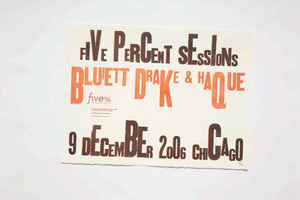 FIVE PERCENT SESSIONS
BLUIETT DRAKE & HAQUE
five%
9 DECEMBER 2006 CHICAGO